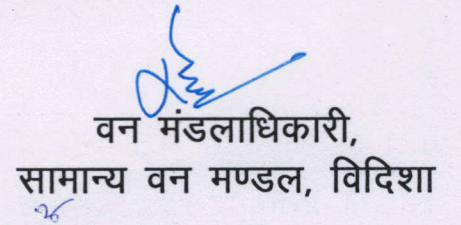 वन मंडलाधिकारी,
सामान्य वन मण्डल, विदिशा